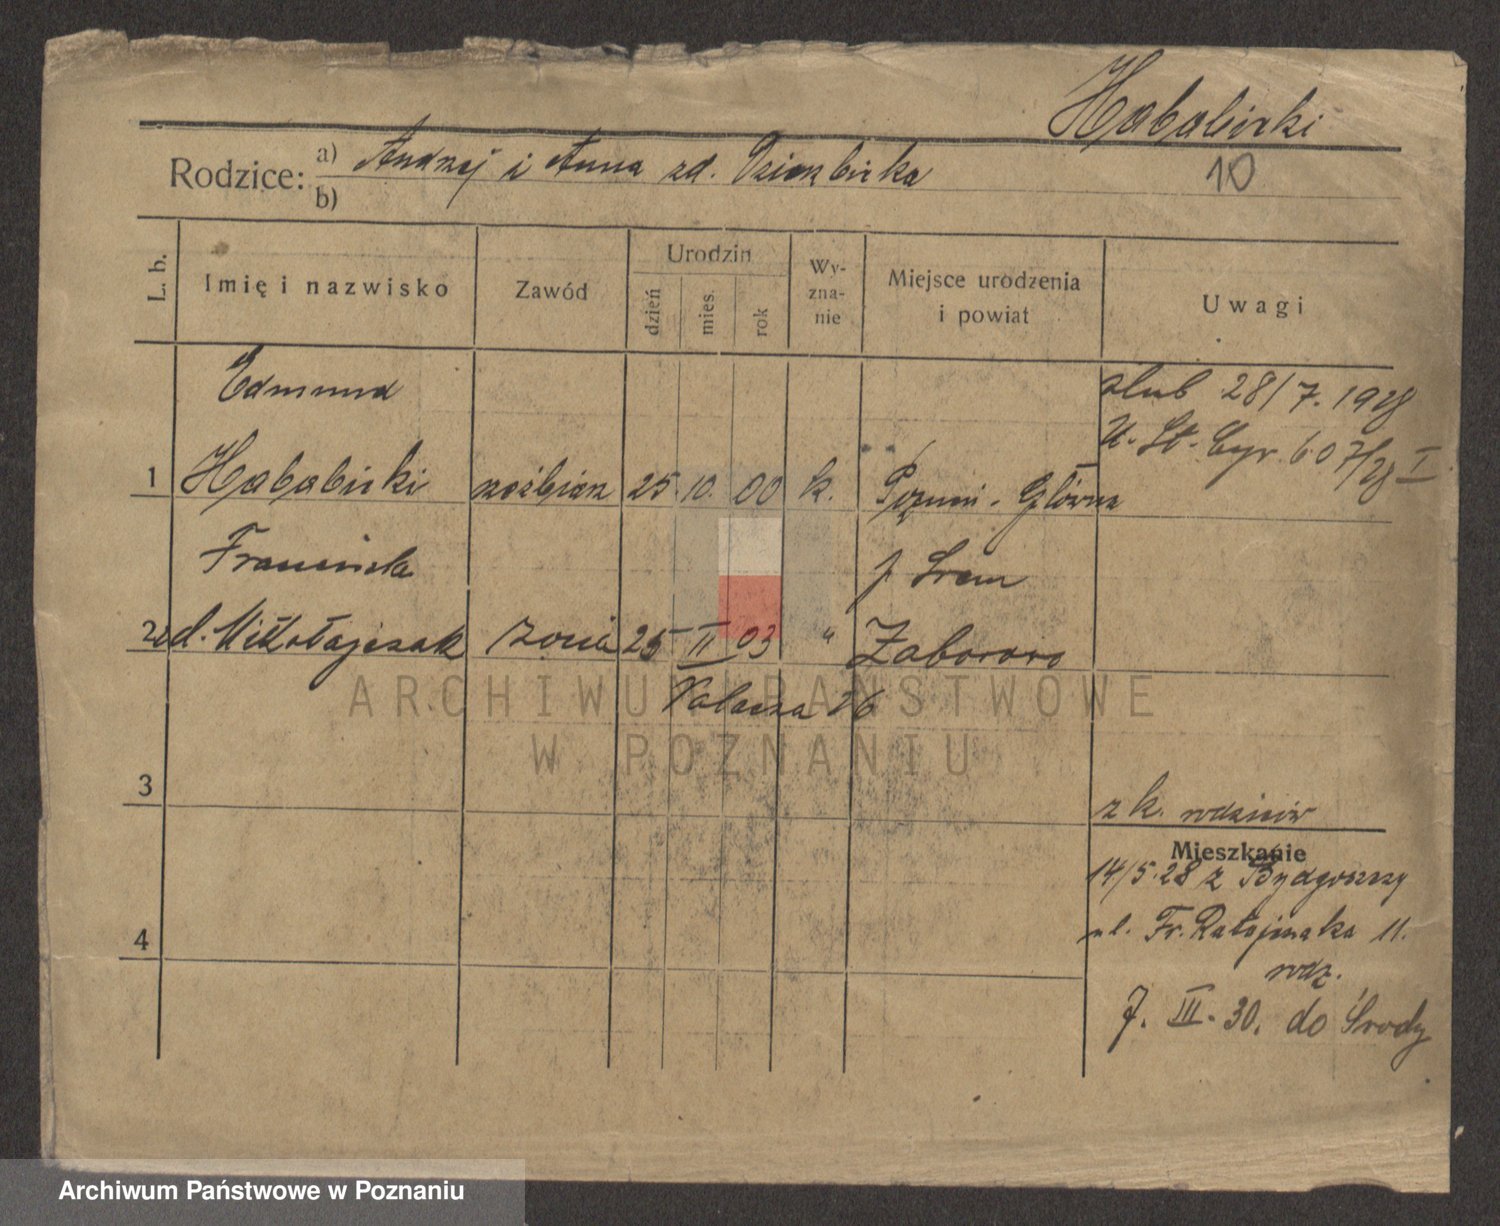 Hababicki
10
Rodzice: a) Andrzej i Anna zd.
b)
L. b.
Imię i nazwisko
Zawód
Urodzin
dzień
mies.
rok
Wy-
zna-
nie
Miejsce urodzenia
i powiat
Uwagi
Edmund
ślub 28/7.1928
U. St. Cyw. 607/28 I
1 Hababicki rzeźbiarz 25. 10. 00 k. Poznań - Główna
Franciszka p. Śrem
2 zd. Mikołajczak żona 25 II 03 " Zaborowo
26
ARCHIWUM PAŃSTWOWE
W POZNANIU
3
z k. rodziców
Mieszkanie
14/5.28 z Bydgoszczy
ul. Fr. Ratajczaka 11.
4
rodz.
7. III. 30. do Środy
Archiwum Państwowe w Poznaniu